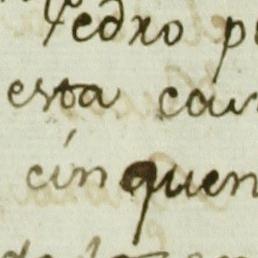 Pedro p
esta cau
cinquen